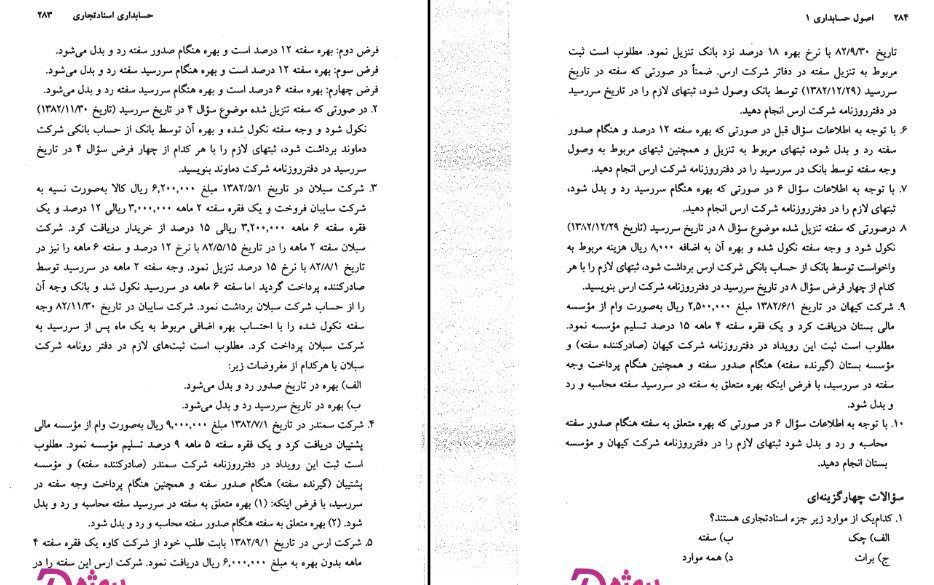 ۲۸۴ اصول حسابداری ۱
تاریخ ۸۲/۹/۳۰ با نرخ بهره ۱۸ درصد نزد بانک تنزیل نمود. مطلوب است ثبت
مربوط به تنزیل سفته در دفاتر شرکت ارس. ضمناً در صورتی که سفته در تاریخ
سررسید (۱۳۸۲/۱۲/۲۹) توسط بانک وصول شود، ثبتهای لازم را در تاریخ سررسید
در دفترروزنامه شرکت ارس انجام دهید.
۶. با توجه به اطلاعات سؤال قبل در صورتی که بهره سفته ۱۲ درصد و هنگام صدور
سفته رد و بدل شود، ثبتهای مربوط به تنزیل و همچنین ثبتهای مربوط به وصول
وجه سفته توسط بانک در سررسید را در دفترروزنامه شرکت ارس انجام دهید.
۷. با توجه به اطلاعات سؤال ۶ در صورتی که بهره هنگام سررسید رد و بدل شود،
ثبتهای لازم را در دفترروزنامه شرکت ارس انجام دهید.
۸. درصورتی که سفته تنزیل شده موضوع سؤال ۸ در تاریخ سررسید (تاریخ ۱۳۸۲/۱۲/۲۹)
نکول شود و وجه سفته نکول شده و بهره آن به اضافه ۸,۰۰۰ ریال هزینه مربوط به
واخواست توسط بانک از حساب بانکی شرکت ارس برداشت شود، ثبتهای لازم را با هر
کدام از چهار فرض سؤال ۸ در تاریخ سررسید در دفترروزنامه شرکت ارس بنویسید.
۹. شرکت کیهان در تاریخ ۱۳۸۲/۶/۱ مبلغ ۲,۵۰۰,۰۰۰ ریال به‌صورت وام از مؤسسه
مالی بستان دریافت کرد و یک فقره سفته ۴ ماهه ۱۵ درصد تسلیم مؤسسه نمود.
مطلوب است ثبت این رویداد در دفترروزنامه شرکت کیهان (صادرکننده سفته) و
مؤسسه بستان (گیرنده سفته) هنگام صدور سفته و همچنین هنگام پرداخت وجه
سفته در سررسید، با فرض اینکه بهره متعلق به سفته در سررسید سفته محاسبه و رد
و بدل شود.
۱۰. با توجه به اطلاعات سؤال ۶ در صورتی که بهره متعلق به سفته هنگام صدور سفته
محاسبه و رد و بدل شود ثبتهای لازم را در دفترروزنامه شرکت کیهان و مؤسسه
بستان انجام دهید.
سؤالات چهارگزینه‌ای
۱. کدام‌یک از موارد زیر جزء اسنادتجاری هستند؟
الف) چک ب) سفته
ج) برات د) همه موارد
حسابداری اسنادتجاری ۲۸۳
فرض دوم: بهره سفته ۱۲ درصد است و بهره هنگام صدور سفته رد و بدل می‌شود.
فرض سوم: بهره سفته ۱۲ درصد است و بهره هنگام سررسید سفته رد و بدل می‌شود.
فرض چهارم: بهره سفته ۶ درصد است و بهره هنگام سررسید سفته رد و بدل می‌شود.
۲. در صورتی که سفته تنزیل شده موضوع سؤال ۴ در تاریخ سررسید (تاریخ ۱۳۸۲/۱۱/۳۰)
نکول شود و وجه سفته نکول شده و بهره آن توسط بانک از حساب بانکی شرکت
دماوند برداشت شود، ثبتهای لازم را با هر کدام از چهار فرض سؤال ۴ در تاریخ
سررسید در دفترروزنامه شرکت دماوند بنویسید.
۳. شرکت سبلان در تاریخ ۱۳۸۲/۵/۱ مبلغ ۶,۲۰۰,۰۰۰ ریال کالا به‌صورت نسیه به
شرکت سایبان فروخت و یک فقره سفته ۲ ماهه ۳,۰۰۰,۰۰۰ ریالی ۱۲ درصد و یک
فقره سفته ۶ ماهه ۳,۲۰۰,۰۰۰ ریالی ۱۵ درصد از خریدار دریافت کرد. شرکت
سبلان سفته ۲ ماهه را در تاریخ ۸۲/۵/۱۵ با نرخ ۱۲ درصد و سفته ۶ ماهه را نیز در
تاریخ ۸۲/۸/۱ با نرخ ۱۵ درصد تنزیل نمود. وجه سفته ۲ ماهه در سررسید توسط
صادرکننده پرداخت گردید اما سفته ۶ ماهه در سررسید نکول شد و بانک وجه آن
را از حساب شرکت سبلان برداشت نمود. شرکت سایبان در تاریخ ۸۲/۱۱/۳۰ وجه
سفته نکول شده را با احتساب بهره اضافی مربوط به یک ماه پس از سررسید به
شرکت سبلان پرداخت کرد. مطلوب است ثبت‌های لازم در دفتر رونامه شرکت
سبلان با هرکدام از مفروضات زیر:
الف) بهره در تاریخ صدور رد و بدل می‌شود.
ب) بهره در تاریخ سررسید رد و بدل می‌شود.
۴. شرکت سمندر در تاریخ ۱۳۸۲/۷/۱ مبلغ ۹,۰۰۰,۰۰۰ ریال به‌صورت وام از مؤسسه مالی
پشتیبان دریافت کرد و یک فقره سفته ۵ ماهه ۹ درصد تسلیم مؤسسه نمود. مطلوب
است ثبت این رویداد در دفترروزنامه شرکت سمندر (صادرکننده سفته) و مؤسسه
پشتیبان (گیرنده سفته) هنگام صدور سفته و همچنین هنگام پرداخت وجه سفته در
سررسید، با فرض اینکه: (۱) بهره متعلق به سفته در سررسید سفته محاسبه و رد و بدل
شود. (۲) بهره متعلق به سفته هنگام صدور سفته محاسبه و رد و بدل شود.
۵. شرکت ارس در تاریخ ۱۳۸۲/۹/۱ بابت طلب خود از شرکت کاوه یک فقره سفته ۴
ماهه بدون بهره به مبلغ ۶,۰۰۰,۰۰۰ ریال دریافت نمود. شرکت ارس این سفته را در